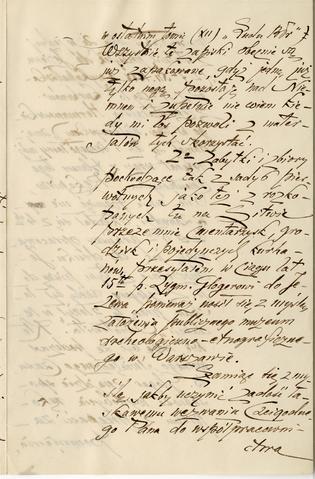 w ostatnim tomie (XII) "Ludu"
Wszystkie te zapiski obecnie są
już zapakowane, gdyż jedną już
tylko nogą pozostaję nad Nie-
mnem i zupełnie nie wiem kie-
dy mi los pozwoli z mater-
jałów tych skorzystać.
2° Zabytki i zbiory
pochodzące tak z sadyb pier-
wotnych jako też z rozko-
panych tu na Litwie
przezemnie cmentarzysk, gro-
dzisk i pojedynczych kurha-
nów, przesyłałem w ciągu lat
15tu p. Zygm. Glogerowi do Je-
żewa ponieważ nosił się z myślą
założenia publicznego muzeum
archeologiczno-etnograficzne-
go w Warszawie.
się z my-
ślą jakby uczynić zadość ła-
skawemu wezwaniu Czcigodne-
go Pana do współpracowni-
ctwa